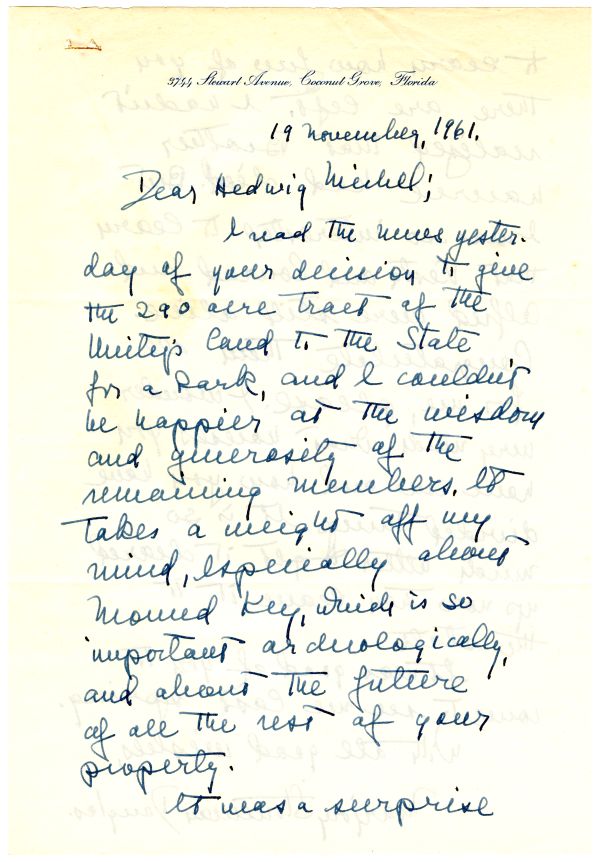 3744 Stewart Avenue, Coconut Grove, Florida
19 November, 1961.
Dear Hedwig Michel;
I read the news yester-
day of your decision to give
the 290 acre tract of the
Unity's land to the State
for a Park, and I couldn't
be happier at the wisdom
and generosity of the
remaining members. It
takes a weight off my
mind, especially about
Mound Key, which is so
important archeologically,
and about the future
of all the rest of your
property.
It was a surprise